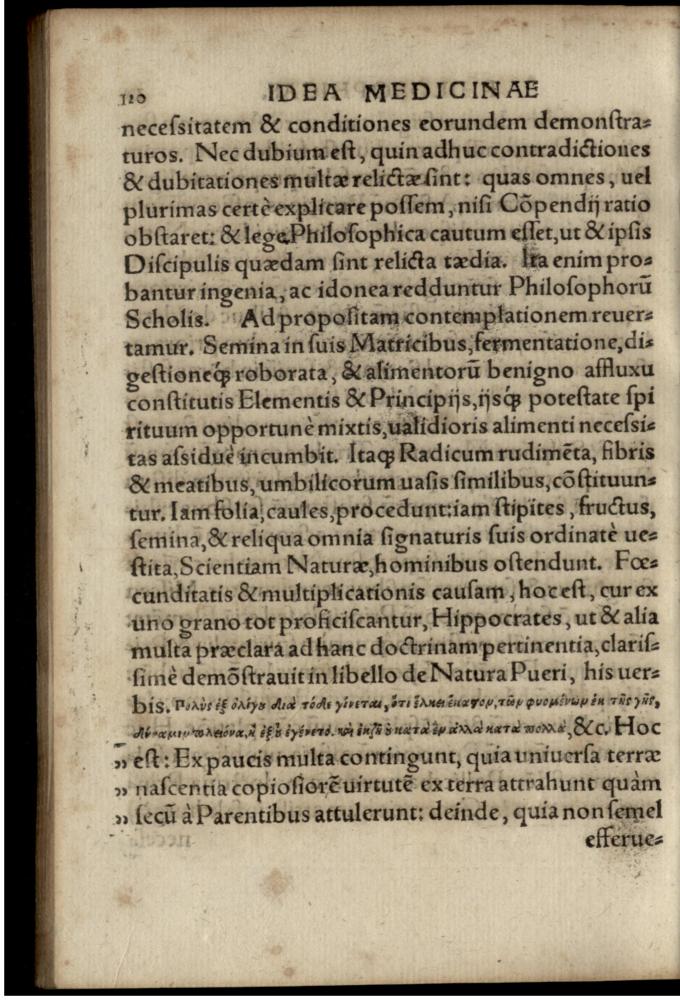 120 IDEA MEDICINAE
neceſsitatem & conditiones eorundem demonſtra=
turos. Nec dubium eſt, quin adhuc contradictiones
& dubitationes multæ relictæ ſint: quas omnes, uel
plurimas certè explicare poſſem, niſi Cõpendij ratio
obſtaret: & lege Philoſophica cautum eſſet, ut & ipſis
Diſcipulis quædam ſint relicta tædia. Ita enim pro=
bantur ingenia, ac idonea redduntur Philoſophorũ
Scholis. Ad propoſitam contemplationem reuer=
tamur. Semina in ſuis Matricibus, fermentatione, di=
geſtioneq́ꝫ roborata, & alimentorũ benigno affluxu
conſtitutis Elementis & Principijs, ijsq́ꝫ poteſtate ſpi
rituum opportunè mixtis, ualidioris alimenti neceſsi=
tas aſsiduè incumbit. Itaqꝫ Radicum rudimẽta, fibris
& meatibus, umbilicorum uaſis ſimilibus, cõſtituun=
tur. Iam folia, caules, procedunt: iam ſtipites, fructus,
ſemina, & reliqua omnia ſignaturis ſuis ordinatè ue=
ſtita, Scientiam Naturæ, hominibus oſtendunt. Fœ=
cunditatis & multiplicationis cauſam, hoc eſt, cur ex
uno grano tot proficiſcantur, Hippocrates, ut & alia
multa præclara ad hanc doctrinam pertinentia, clariſ=
ſimè demõſtrauit in libello de Natura Pueri, his uer=
bis. Πολὺς ἐξ ὀλίγου διὰ τόδε γίνεται, ὅτι ἕλκει ἕκαστον, τῶν φυομένων ἐκ τῆς γῆς,
δύναμιν πλειόνα, ἢ ἐξ οὗ ἐγένετο. καὶ ἐκζεῖ οὐ κατὰ ἓν ἀλλὰ κατὰ πολλά, &c. Hoc
„ eſt: Ex paucis multa contingunt, quia uniuerſa terræ
„ naſcentia copioſiorẽ uirtutẽ ex terra attrahunt quàm
„ ſecũ à Parentibus attulerunt: deinde, quia non ſemel
efferue=